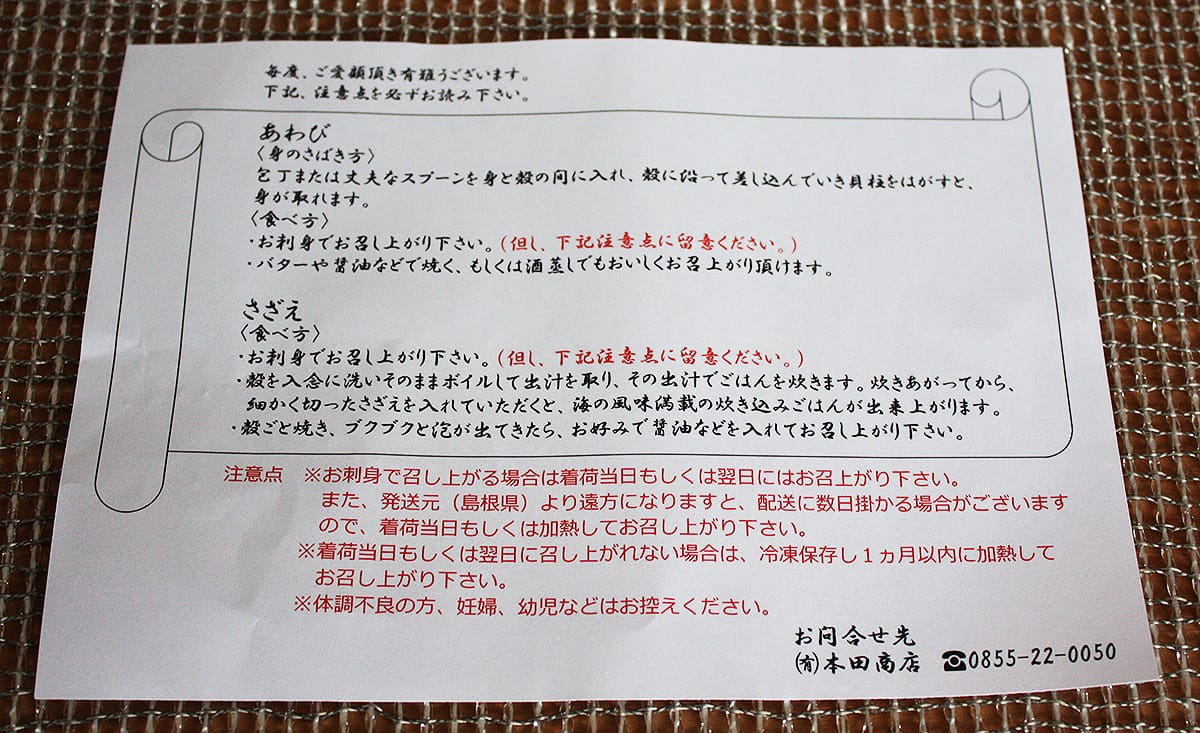 毎度、ご愛顧頂き有難うございます。
下記、注意点を必ずお読み下さい。
あわび
〈身のさばき方〉
包丁または丈夫なスプーンを身と殻の間に入れ、殻に沿って差し込んでいき貝柱をはがすと、
身が取れます。
〈食べ方〉
・お刺身でお召し上がり下さい。（但し、下記注意点に留意ください。）
・バターや醤油などで焼く、もしくは酒蒸しでもおいしくお召上がり頂けます。
さざえ
〈食べ方〉
・お刺身でお召し上がり下さい。（但し、下記注意点に留意ください。）
・殻を入念に洗いそのままボイルして出汁を取り、その出汁でごはんを炊きます。炊きあがってから、
細かく切ったさざえを入れていただくと、海の風味満載の炊き込みごはんが出来上がります。
・殻ごと焼き、ブクブクと泡が出てきたら、お好みで醤油などを入れてお召し上がり下さい。
注意点 ※お刺身で召し上がる場合は着荷当日もしくは翌日にはお召上がり下さい。
また、発送元（島根県）より遠方になりますと、配送に数日掛かる場合がございます
ので、着荷当日もしくは加熱してお召し上がり下さい。
※着荷当日もしくは翌日に召し上がれない場合は、冷凍保存し１ヵ月以内に加熱して
お召し上がり下さい。
※体調不良の方、妊婦、幼児などはお控えください。
お問合せ先
㈲本田商店 ☎0855-22-0050